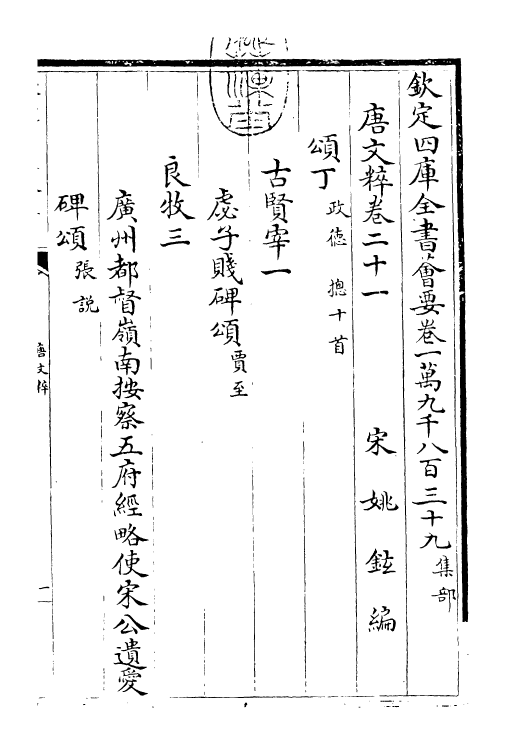 欽定四庫全書薈要卷一萬九千八百三十九集部
唐文粹卷二十一　宋姚鉉編
頌丁政德　摠十首
古賢宰一
虙子賤碑頌賈至
良牧三
廣州都督嶺南按察五府經略使宋公遺愛
碑頌張說
唐文粹
一